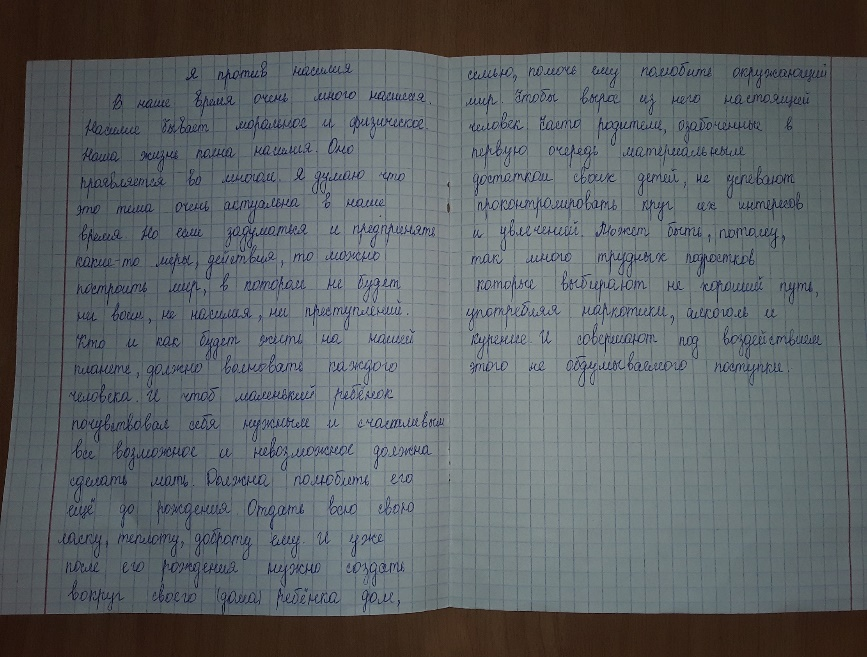 Я против насилия
В наше время очень много насилия.
Насилие бывает моральное и физическое.
Наша жизнь полна насилия. Оно
проявляется во многом. Я думаю что
это тема очень актуальна в наше
время. Но если задуматься и предпринять
какие-то меры, действия, то можно
построить мир, в котором не будет
ни воин, не насилия, ни преступлений.
Кто и как будет жить на нашей
планете, должно волновать каждого
человека. И чтоб маленький ребёнок
почувствовал себя нужным и счастливым
все возможное и невозможное должна
сделать мать. Должна полюбить его
ещё до рождения. Отдать всю свою
ласку, теплоту, доброту ему. И уже
после его рождения нужно создать
вокруг своего (дома) ребёнка дом,
семью, помочь ему полюбить окружающий
мир. Чтобы вырос из него настоящий
человек. Часто родители, озабоченные в
первую очередь материальным
достатком своих детей, не успевают
проконтролировать круг их интересов
и увлечений. Может быть, потому,
так много трудных подростков
которые выбирают не хороший путь,
употребляя наркотики, алкоголь и
курение. И совершают под воздействием
этого не обдумываемого поступки.